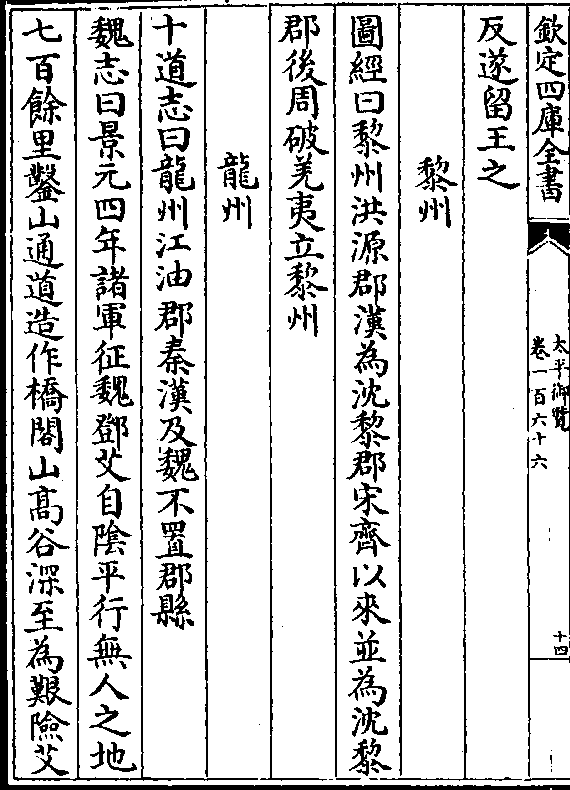 欽定四庫全書
太平御覽
卷一百六十六
十四
反遂留王之
黎州
圖經曰黎州洪源郡漢為沈黎郡宋齊以來並為沈黎
郡後周破羌夷立黎州
龍州
十道志曰龍州江油郡秦漢及魏不置郡縣
魏志曰景元四年諸軍征魏鄧艾自陰平行無人之地
七百餘里鑿山通道造作橋閣山高谷深至為艱險艾